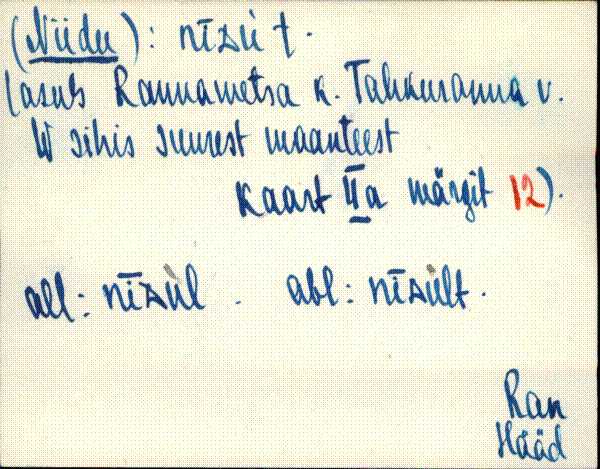 (Niidu): nīᴅu t.
(asub Rannametsa k. Tahkuranna v.
W sihis suurest maanteest
Kaart IIa märgit 12).
all: nīᴅul. abl: nīᴅult.
Ran
Hääd